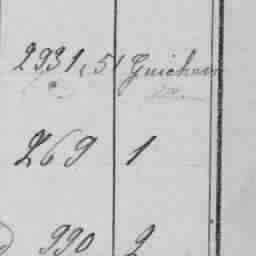 2931,51 Guichen
269 1
990 2